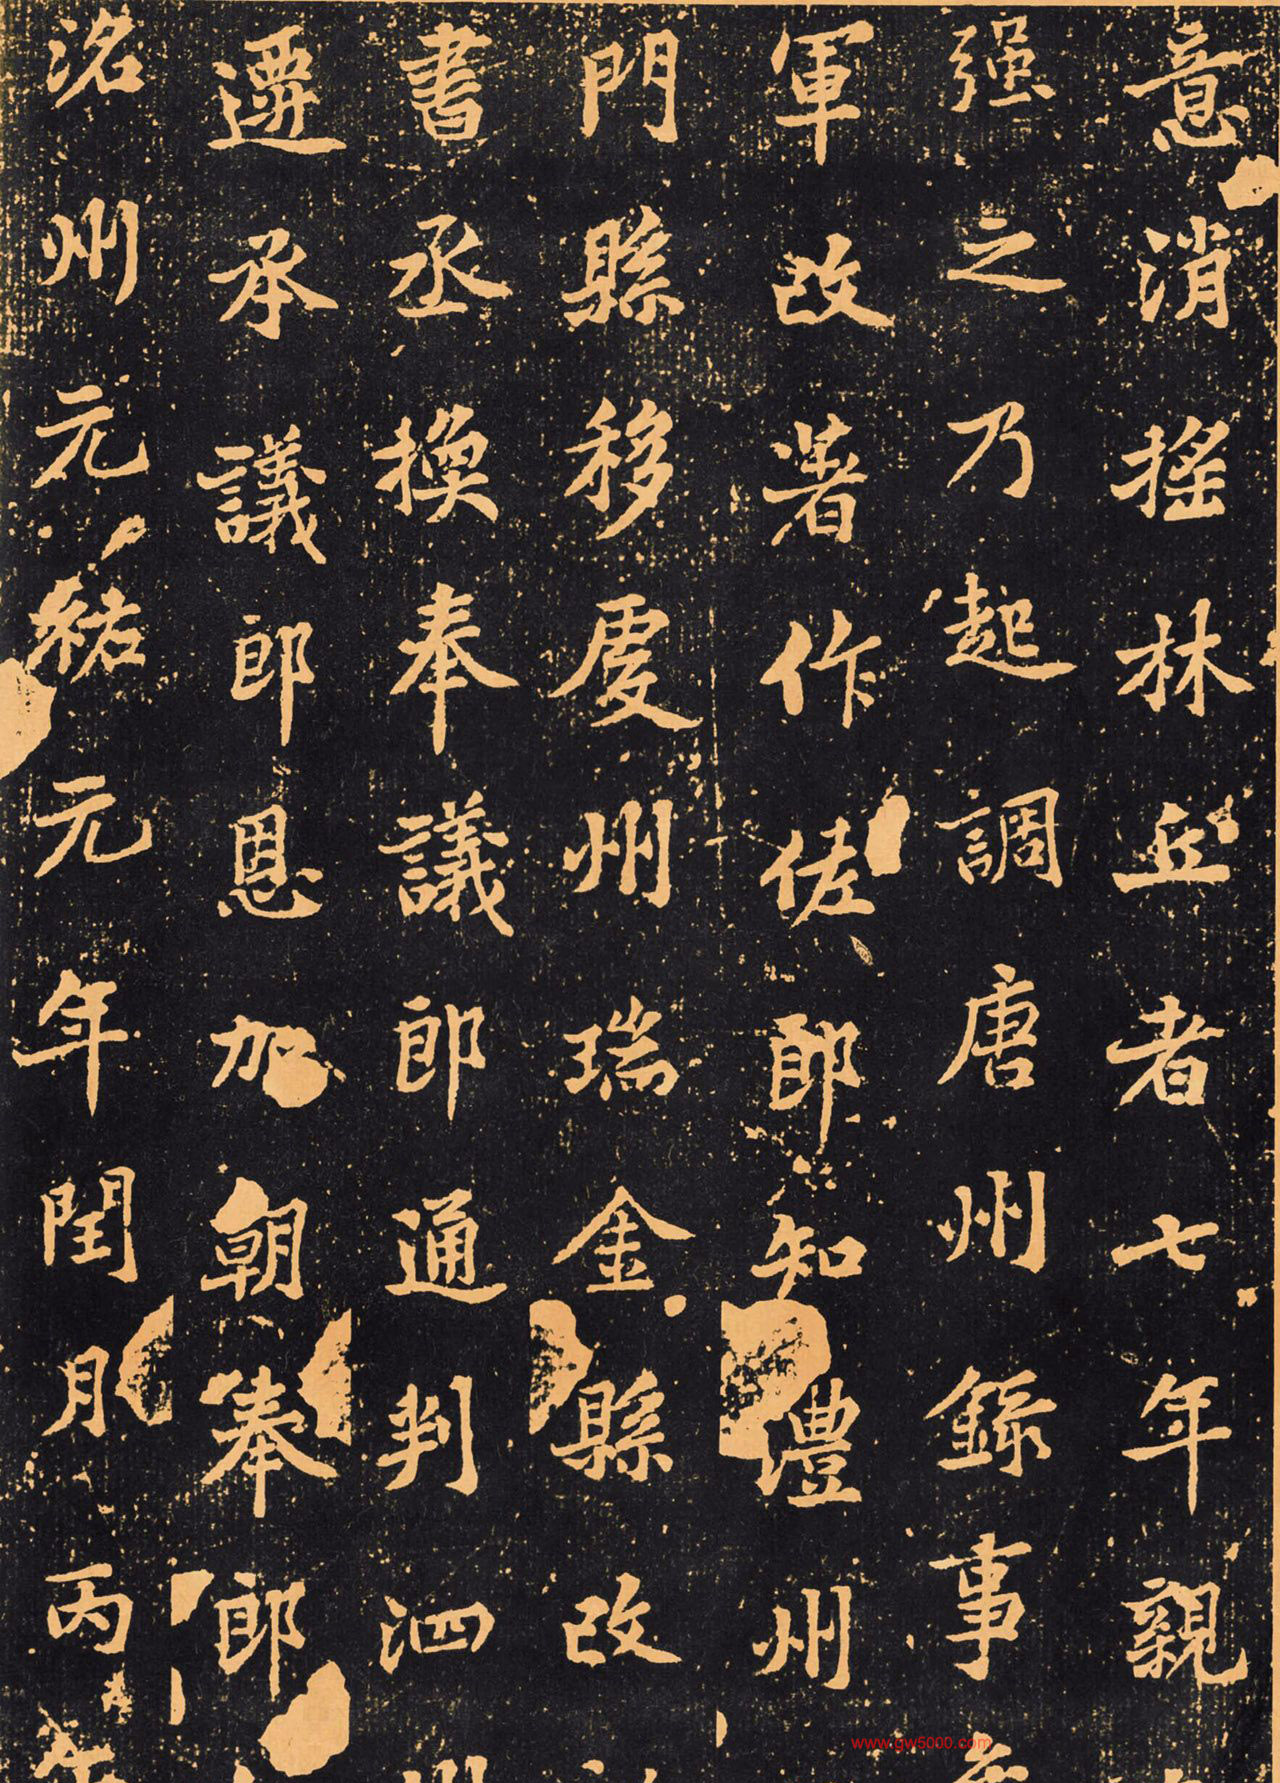 意消摇林丘者七年親
强之乃起調唐州錄事
軍改著作佐郎知澧州
門縣移虔州瑞金縣改
書丞換奉議郎通判泗
遷承議郎恩加朝奉郎
洺州元祐元年閏月丙
www.gw5000.com